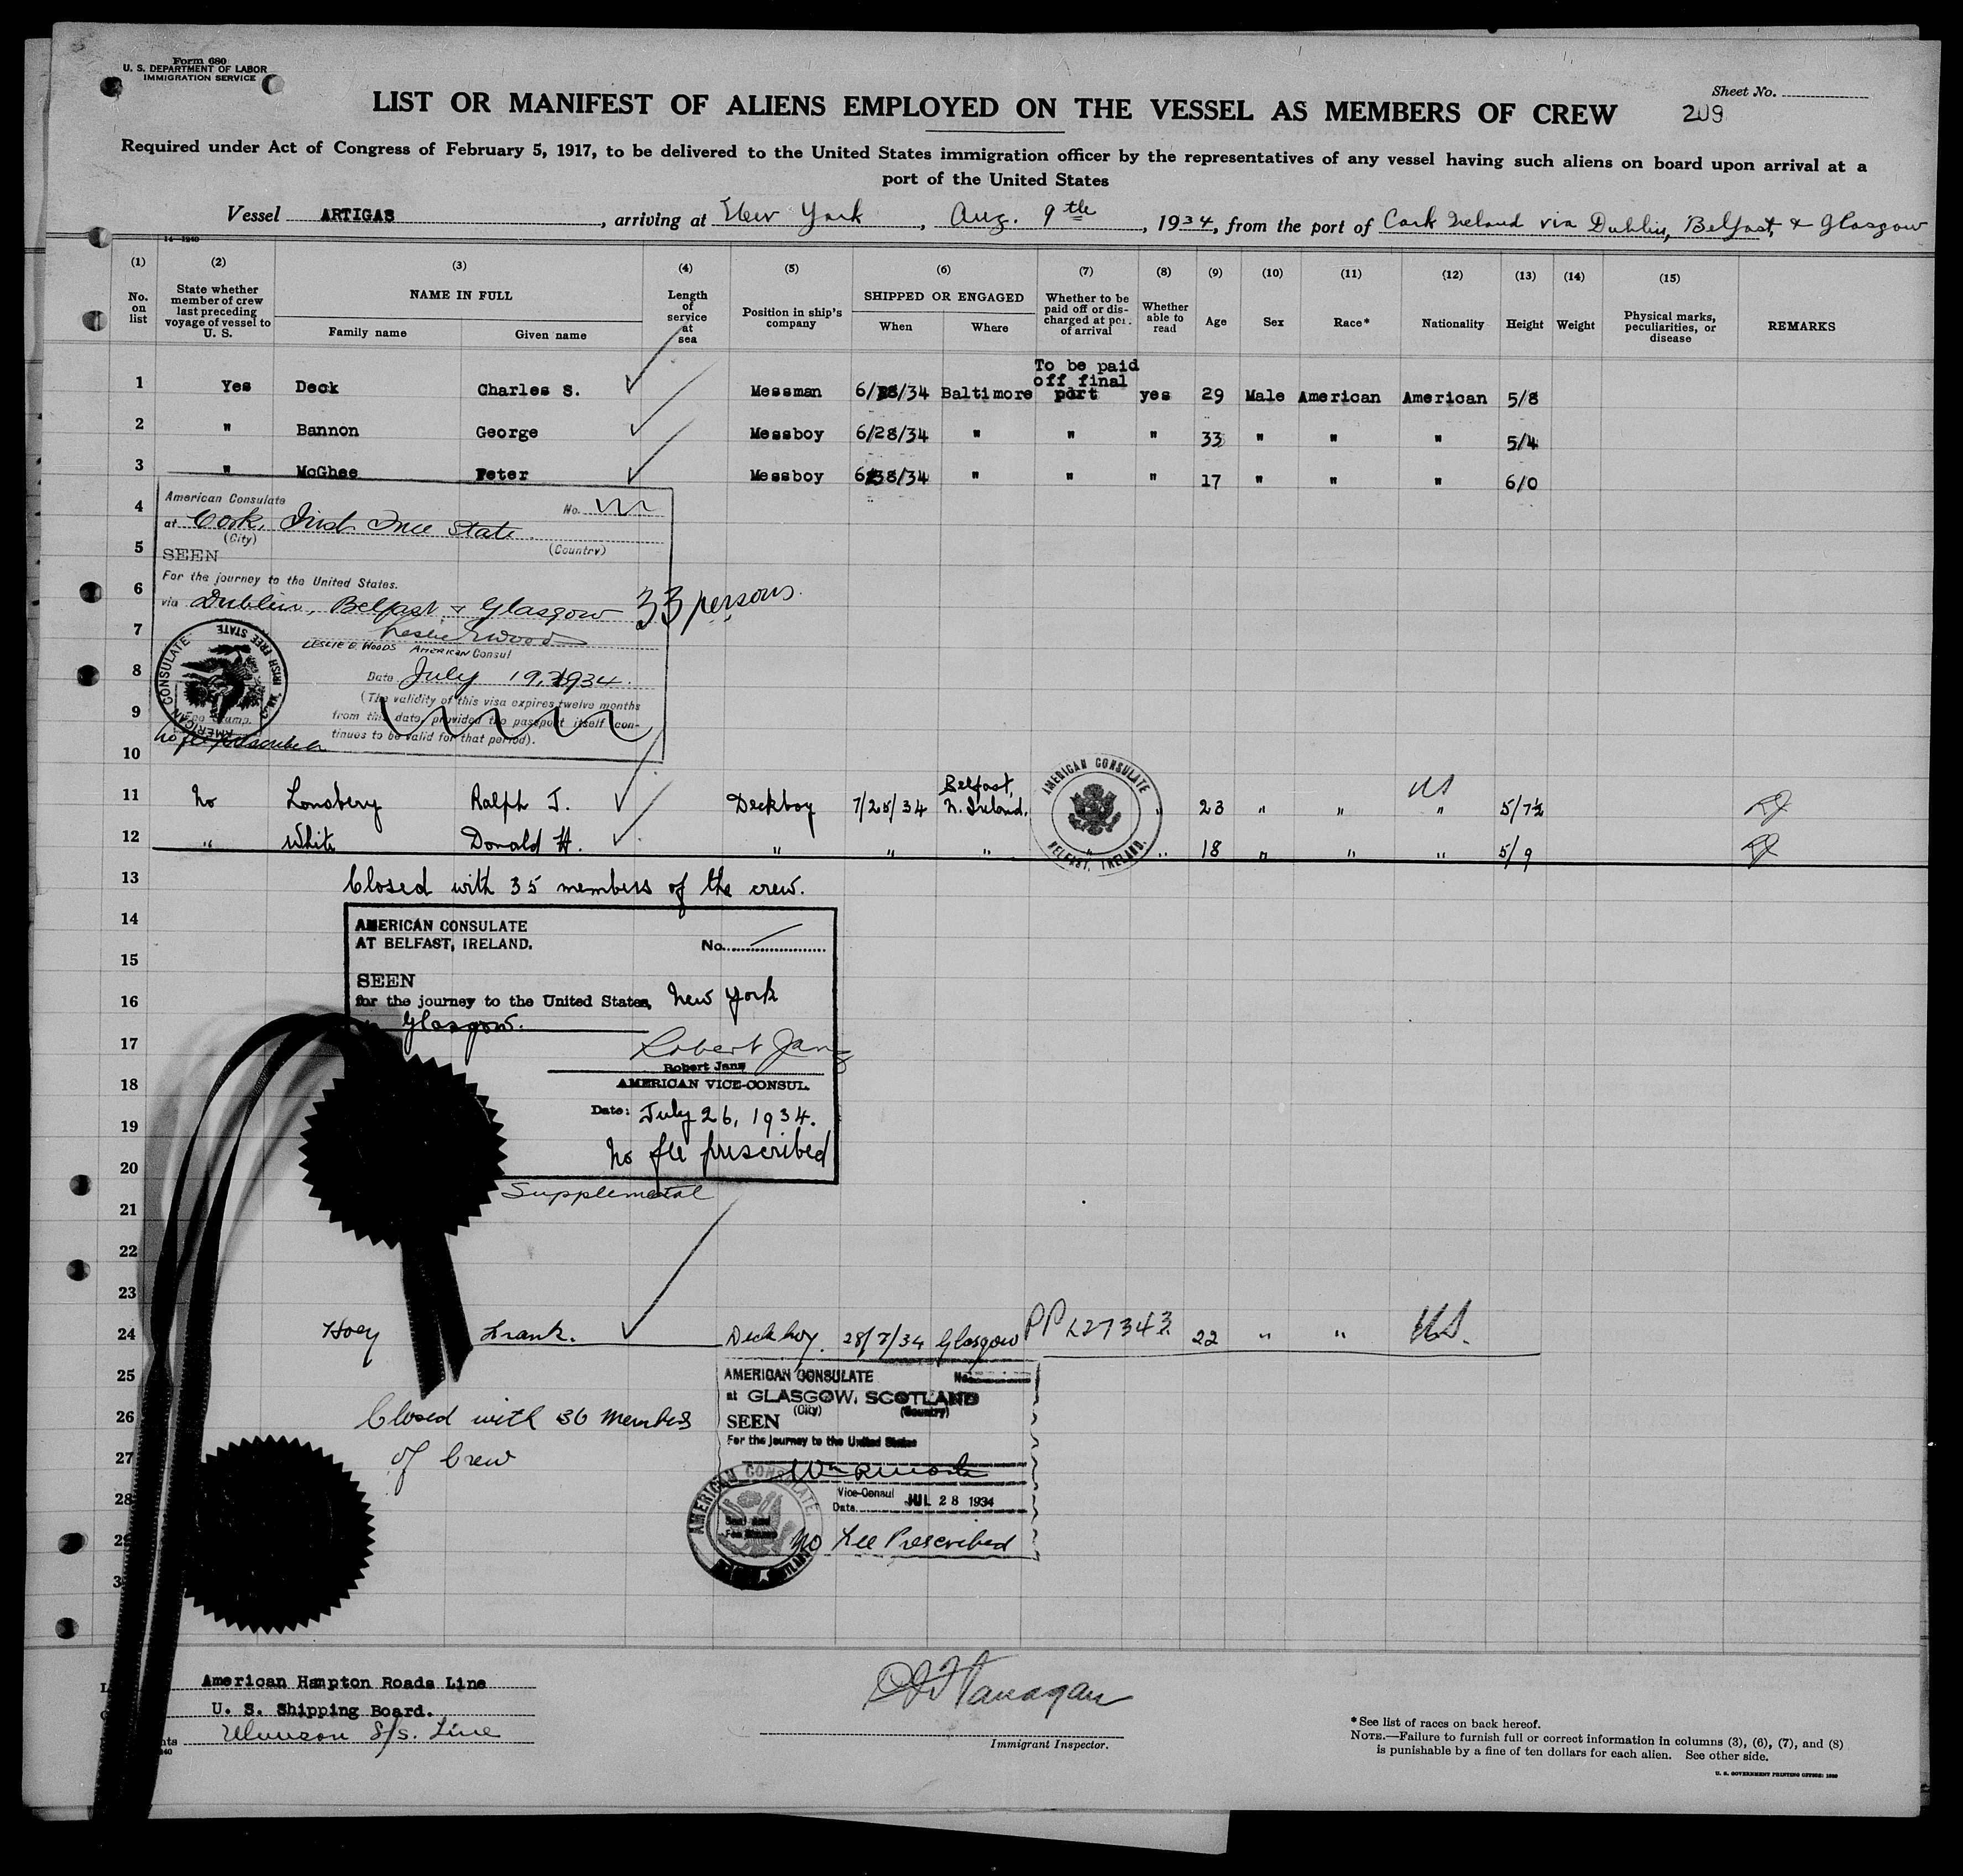 Form 680
U. S. DEPARTMENT OF LABOR
IMMIGRATION SERVICE
Sheet No.
LIST OR MANIFEST OF ALIENS EMPLOYED ON THE VESSEL AS MEMBERS OF CREW
209
Required under Act of Congress of February 5, 1917, to be delivered to the United States immigration officer by the representatives of any vessel having such aliens on board upon arrival at a
port of the United States
Vessel ARTIGAS, arriving at New York, Aug. 9th, 1934, from the port of Cork Ireland via Dublin, Belfast, & Glasgow
14-1240
(1) (2) (3) (4) (5) (6) (7) (8) (9) (10) (11) (12) (13) (14) (15)
No. on list
State whether member of crew last preceding voyage of vessel to U. S.
NAME IN FULL
Family name Given name
Length of service at sea
Position in ship's company
SHIPPED OR ENGAGED
When Where
Whether to be paid off or discharged at port of arrival
Whether able to read
Age Sex Race* Nationality Height Weight
Physical marks, peculiarities, or disease
REMARKS
To be paid off final port
1 Yes Deck Charles S. Messman 6/28/34 Baltimore yes 29 Male American American 5/8
2 " Bannon George Messboy 6/28/34 " " " 33 " " " 5/4
3 " McGhee Peter Messboy " " " 17 " " " 6/0
4
American Consulate No.
at Cork, Irish Free State
(City) (Country)
5
SEEN
For the journey to the United States.
6
via Dublin, Belfast & Glasgow 33 persons.
7
LESLIE E. WOODS American Consul
8
Date July 19, 1934.
(The validity of this visa expires twelve months
9
from this date, provided the passport itself con-
tinues to be valid for that period).
AMERICAN CONSULATE IRISH FREE STATE
Fee Stamp.
No fee prescribed
10
AMERICAN CONSULATE
BELFAST, IRELAND.
11 No Lonsbery Ralph J. Deckboy 7/25/34 Belfast, N. Ireland. " 23 " " US " 5/7½
12 " White Donald H. " " " " " 18 " " " 5/9
13 Closed with 35 members of the crew.
14
AMERICAN CONSULATE
AT BELFAST, IRELAND. No.
15
SEEN
16
for the journey to the United States, New York
Glasgow.
17
Robert Janz
Robert Janz
18
AMERICAN VICE-CONSUL.
19
Date: July 26, 1934.
No fee prescribed
20
Supplemental
21
22
23
24 Hoey Frank. Deckboy. 28/7/34 Glasgow PP 22 " " US.
25
AMERICAN CONSULATE No.
at GLASGOW, SCOTLAND
(City) (Country)
26 Closed with 36 members
SEEN
For the journey to the United States
27 of Crew
28
Vice-Consul
Date JUL 28 1934
AMERICAN CONSULATE
29
No Fee Prescribed
American Hampton Roads Line
U. S. Shipping Board.
Munson S/s. Line
Flanagan
Immigrant Inspector.
*See list of races on back hereof.
NOTE.—Failure to furnish full or correct information in columns (3), (6), (7), and (8)
is punishable by a fine of ten dollars for each alien. See other side.
U. S. GOVERNMENT PRINTING OFFICE: